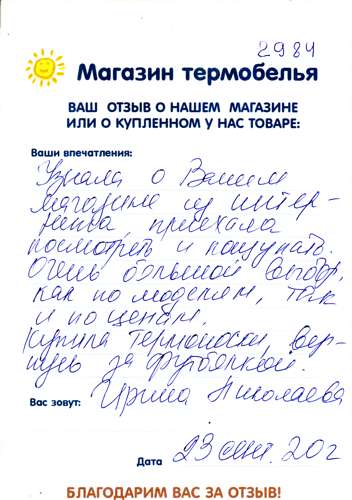 2984
Магазин термобелья
ВАШ ОТЗЫВ О НАШЕМ МАГАЗИНЕ
ИЛИ О КУПЛЕННОМ У НАС ТОВАРЕ:
Ваши впечатления:
Узнала о Вашем
магазине из интер-
нета, приехала
посмотреть и пощупать.
Очень большой выбор,
как по моделям, так
и по ценам.
Купила термоноски, вер-
нусь за футболкой.
Вас зовут: Ирина Николаева
Дата 23 сент. 20 г
БЛАГОДАРИМ ВАС ЗА ОТЗЫВ!